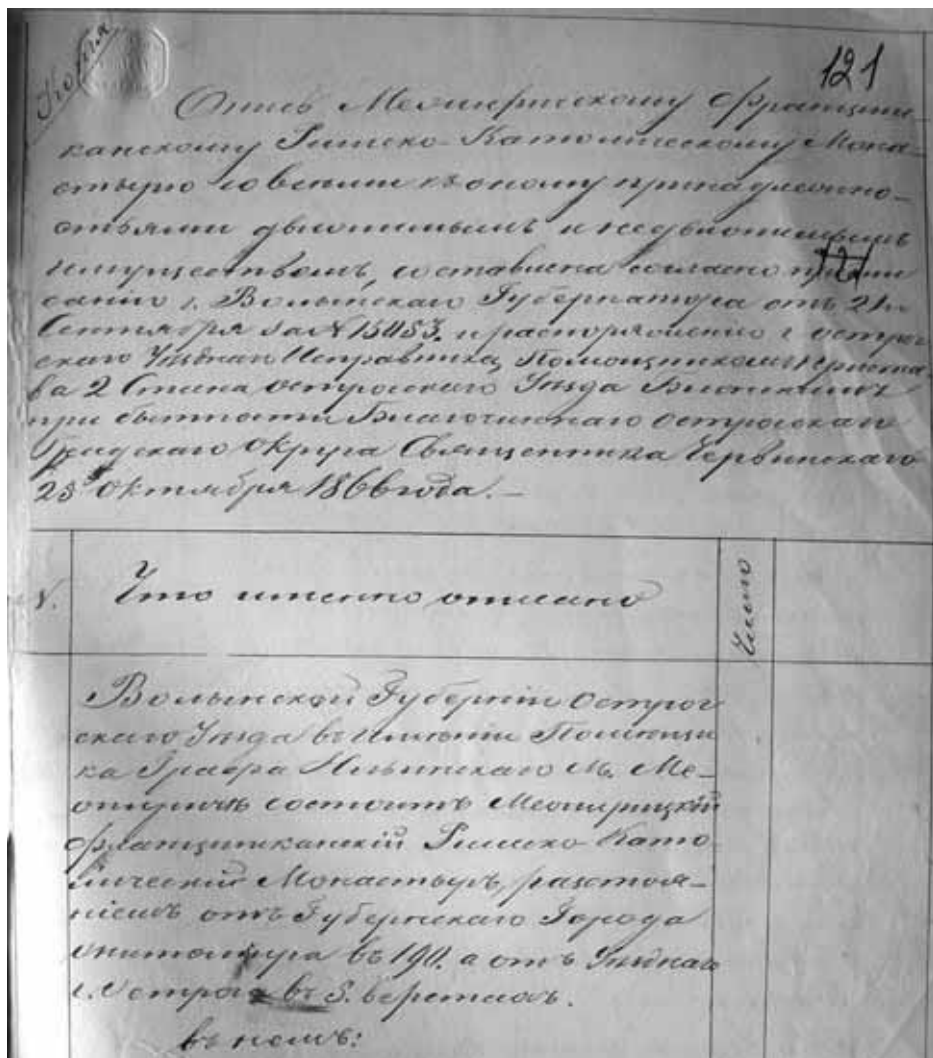 Копія
121
Опись Межирицскому Францис-
канскому Римско-Католическому Мона-
стырю со всеми къ оному принадлежно-
стьями движимымъ и недвижимымъ
имуществомъ, составлена согласно предпи
санію г. Волынскаго Губернатора отъ 21го
Сентября за № 15483. и распоряженію г. острог
скаго Уѣзднаго Исправника, Помощникомъ Приста-
ва 2 Стана острогскаго Уѣзда
при бытности Благочиннаго острогскаго
Градскаго Округа Священника Червинскаго
23 Октября 1866 года. —
N.
Что именно описано
Число
Волынской Губерніи Острог
скаго Уѣзда въ Имѣніи Помѣщи
ка Графа Ильинскаго М. Ме-
жиричѣ состоитъ Межирицкій
францишканскій Римско-Като-
лическій Монастырь, разстоя-
ніемъ отъ Губернскаго Города
Житомира въ 190. а отъ Уѣзднаго
г. Острога въ 5. верстахъ.
въ немъ: